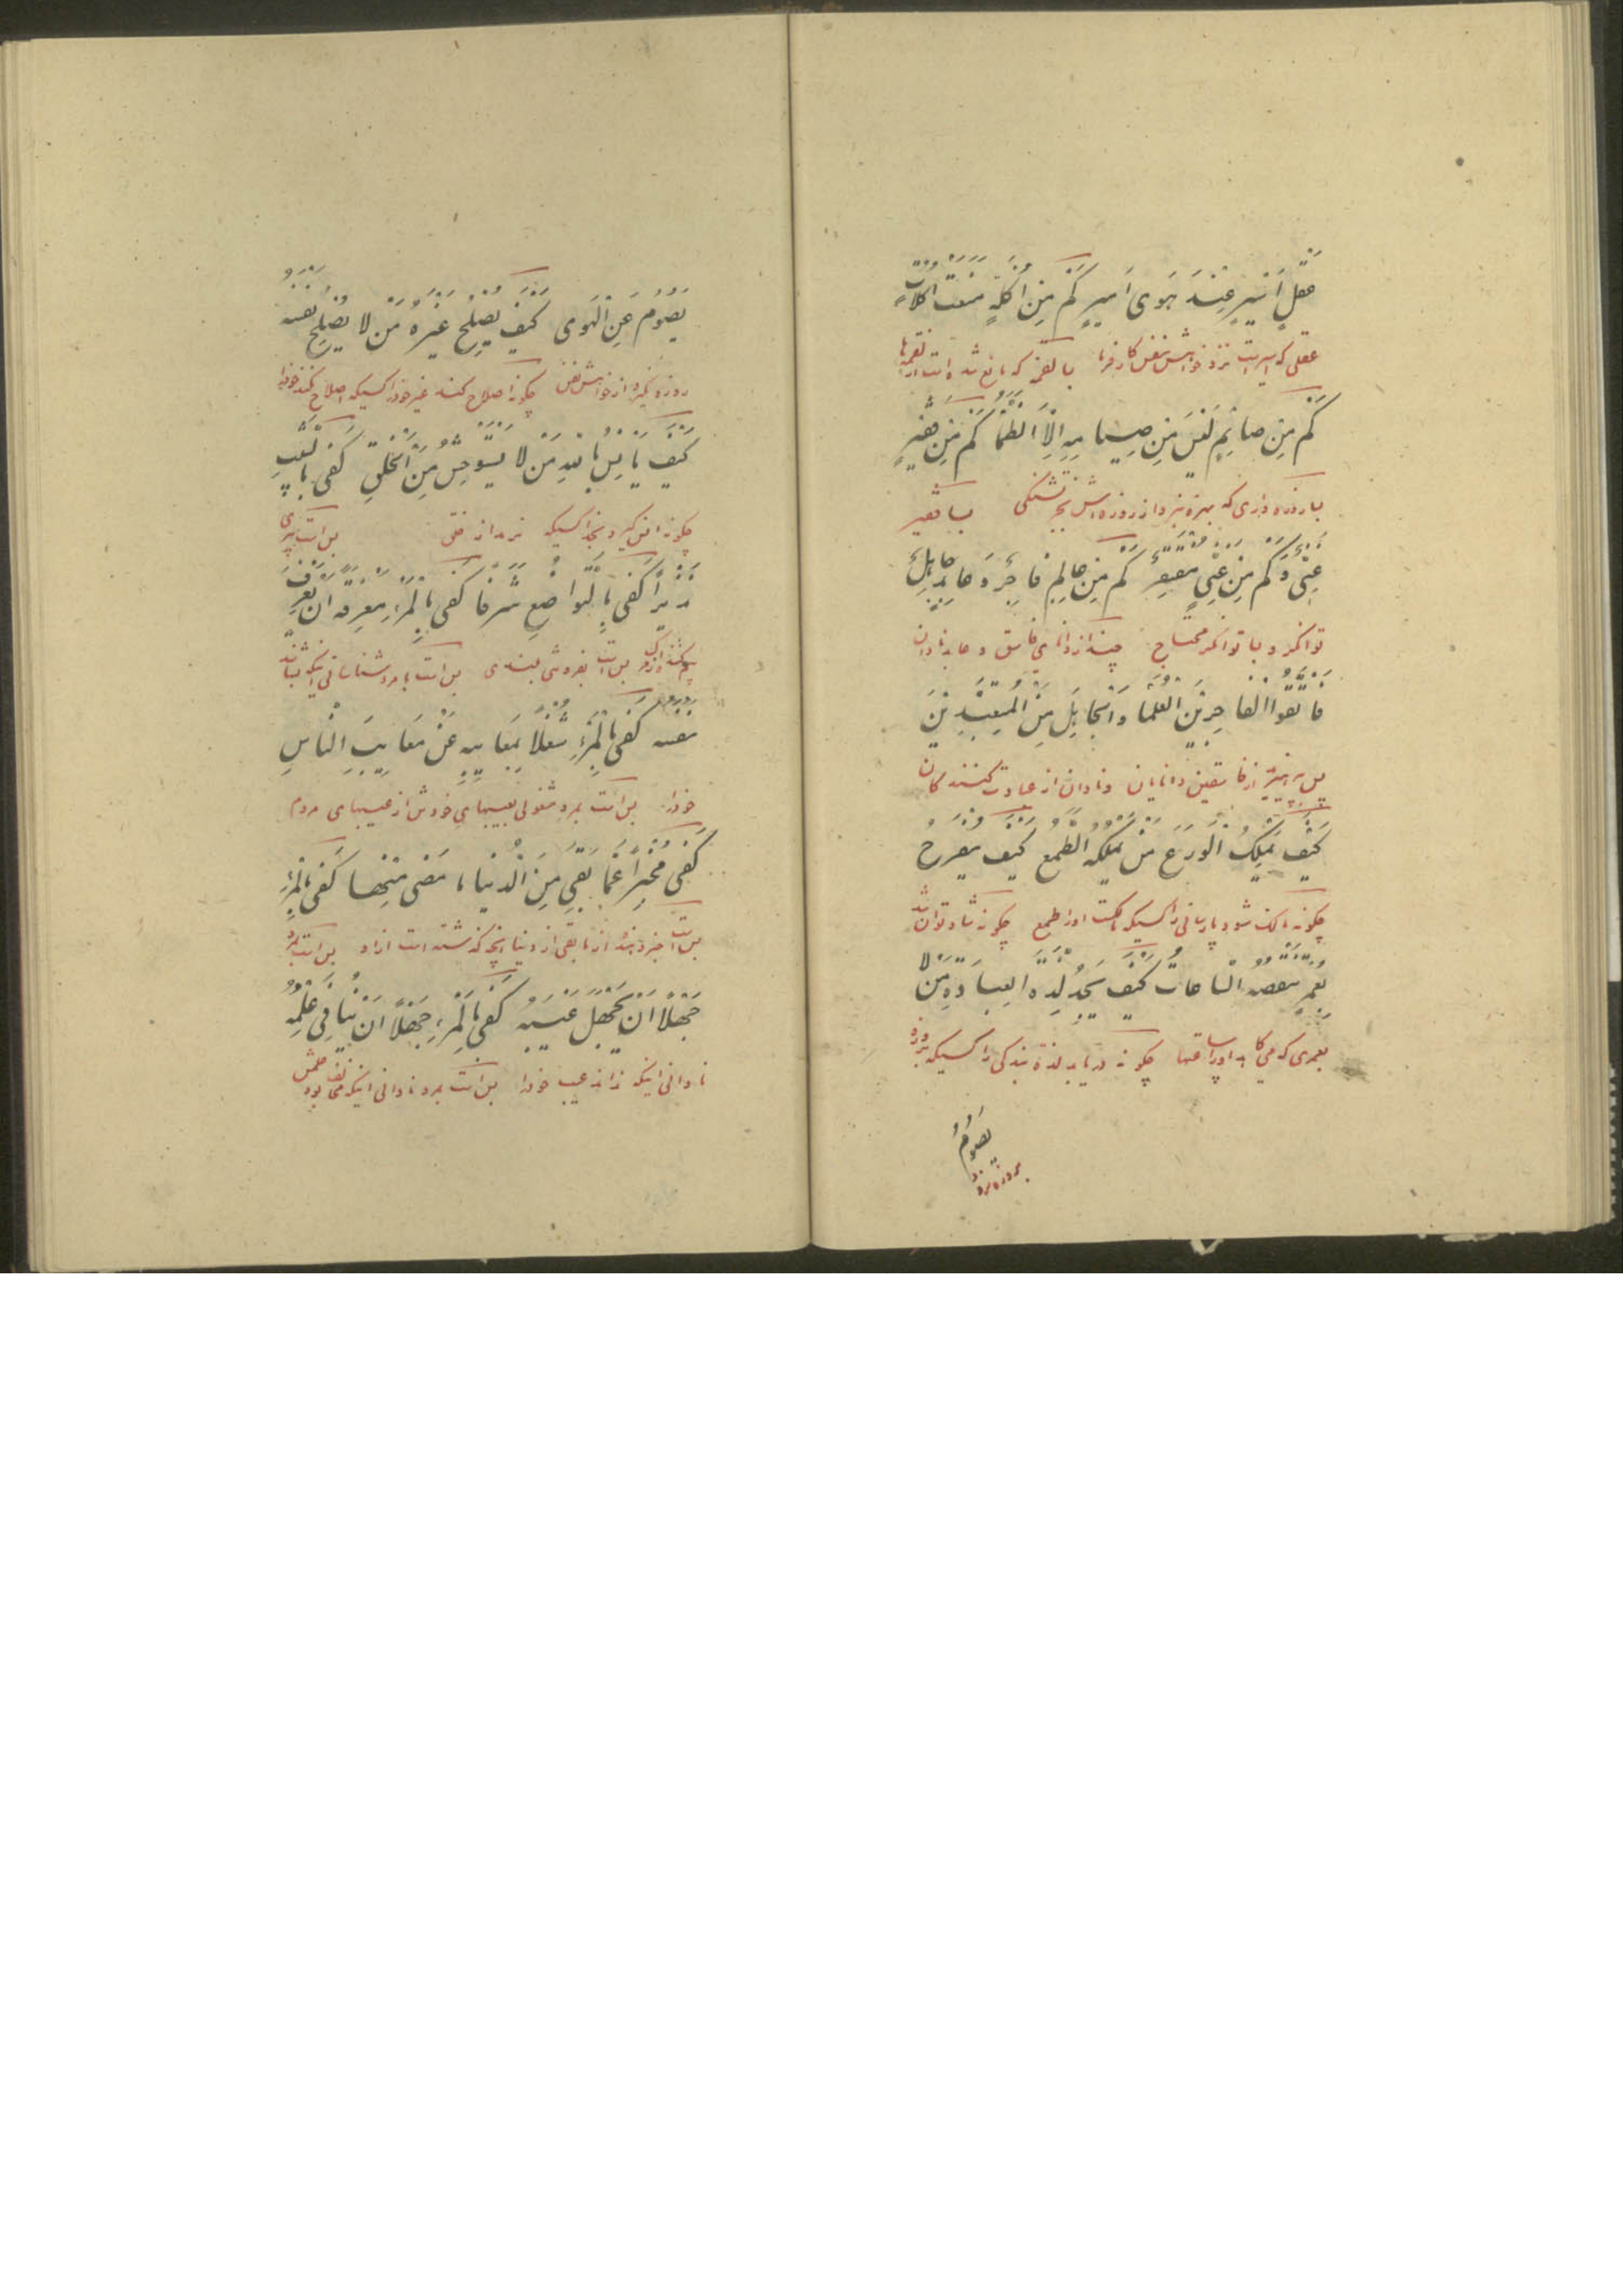 عَقْلٍ اَسِيرٍ عِنْدَ هَوىً اَمِيرٍ كَمْ مِنْ اَكْلَةٍ مَنَعَتْ اَكَلاتٍ
عقلی که اسیر است نزد خواهش نفس کارفرما بسا لقمه که مانع شده است از لقمه‌ها
كَمْ مِنْ صَائِمٍ لَيْسَ مِنْ صِيامِهِ اِلَّا الظَّمَأُ كَمْ مِنْ فَقِيرٍ
بسا روزه داری که بهره نبرد از روزه‌اش بجز تشنگی بسا فقیر
غَنِيٌّ وَكَمْ مِنْ غَنِيٍّ مُفْتَقِرٌ كَمْ مِنْ عالِمٍ فاجِرٌ وَعابِدٍ جاهِلٌ
توانگر و بسا توانگر محتاج چند از دانای فاسق و عابد نادان
فَاتَّقُوا الْفاجِرَ مِنَ الْعُلَمَا وَالْجاهِلَ مِنَ الْمُتَعَبِّدِينَ
پس بپرهیزید از فاسقین دانایان و نادان از عبادت کنندگان
كَيْفَ يَمْلِكُ الْوَرَعَ مَنْ يَمْلِكُهُ الطَّمَعُ كَيْفَ يَفْرَحُ
چگونه مالک شود پارسائی را کسیکه مالکست او را طمع چگونه شاد توان شد
بِعُمْرٍ تَنْقُصُهُ السَّاعَاتُ كَيْفَ يَجِدُ لَذَّةَ الْعِبَادَةِ مَنْ لا
بعمری که می‌کاهد او را ساعتها چگونه دریابد لذة بندگی را کسیکه روزه
يَصُومُ
يَصُومُ عَنِ الْهَوى كَيْفَ يُصْلِحُ غَيْرَهُ مَنْ لا يُصْلِحُ نَفْسَهُ
روزه نگیرد از خواهش نفس چگونه اصلاح کند غیر خود را کسیکه اصلاح نکند خود را
كَيْفَ يَأْنِسُ بِاللهِ مَنْ لا يَسْتَوْحِشُ مِنَ الْخَلْقِ كَفى بِالشَّيْبِ
چگونه انس گیرد بخدا کسیکه نرمد از خلق بس است پیری
نَذِيراً كَفى بِالتَّواضُعِ شَرَفاً كَفى بِالْمَرْءِ مَعْرِفَةً اَنْ يَعْرِفَ
بس است بفروتنی بلندی بس است بمرد شناسائی اینکه بشناسد
نَفْسَهُ كَفى بِالْمَرْءِ شُغْلاً بِمَعايِبِهِ عَنْ مَعايِبِ النَّاسِ
خود را بس است بمرد مشغولی بعیبهای خودش از عیبهای مردم
كَفى مُخْبِراً عَمَّا بَقِيَ مِنَ الدُّنْيا ما مَضى مِنْها كَفى بِالْمَرْءِ
بس است خبر دهنده از مابقی از دنیا آنچه گذشته است از او بس است بمرد
جَهْلاً اَنْ يَجْهَلَ عَيْبَهُ كَفى بِالْمَرْءِ جَهْلاً اَنْ يُنافِيَ عِلْمَهُ
نادانی اینکه نداند عیب خود را بس است بمرد نادانی اینکه منافی بود علمش